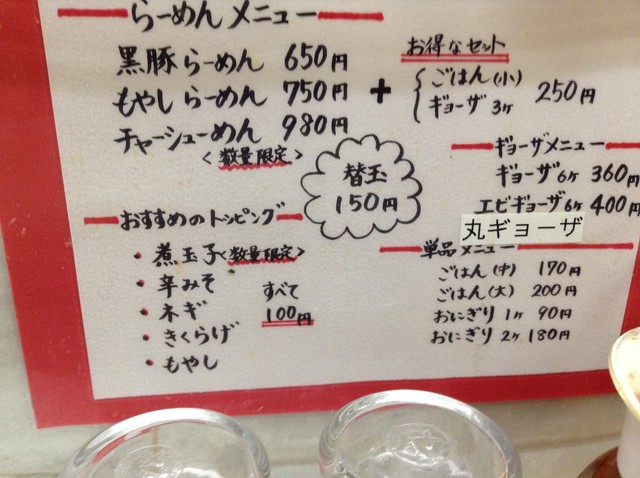 らーめんメニュー
黒豚らーめん 650円
もやしらーめん 750円
チャーシューめん 980円
<数量限定>
+
お得なセット
ごはん(小)
ギョーザ 3ヶ
250円
替玉
150円
ギョーザメニュー
ギョーザ 6ヶ 360円
エビギョーザ 6ヶ 400円
丸ギョーザ
おすすめのトッピング
・煮玉子<数量限定>
・辛みそ
・ネギ
・きくらげ
・もやし
すべて
100円
単品メニュー
ごはん(中) 170円
ごはん(大) 200円
おにぎり 1ヶ 90円
おにぎり 2ヶ 180円